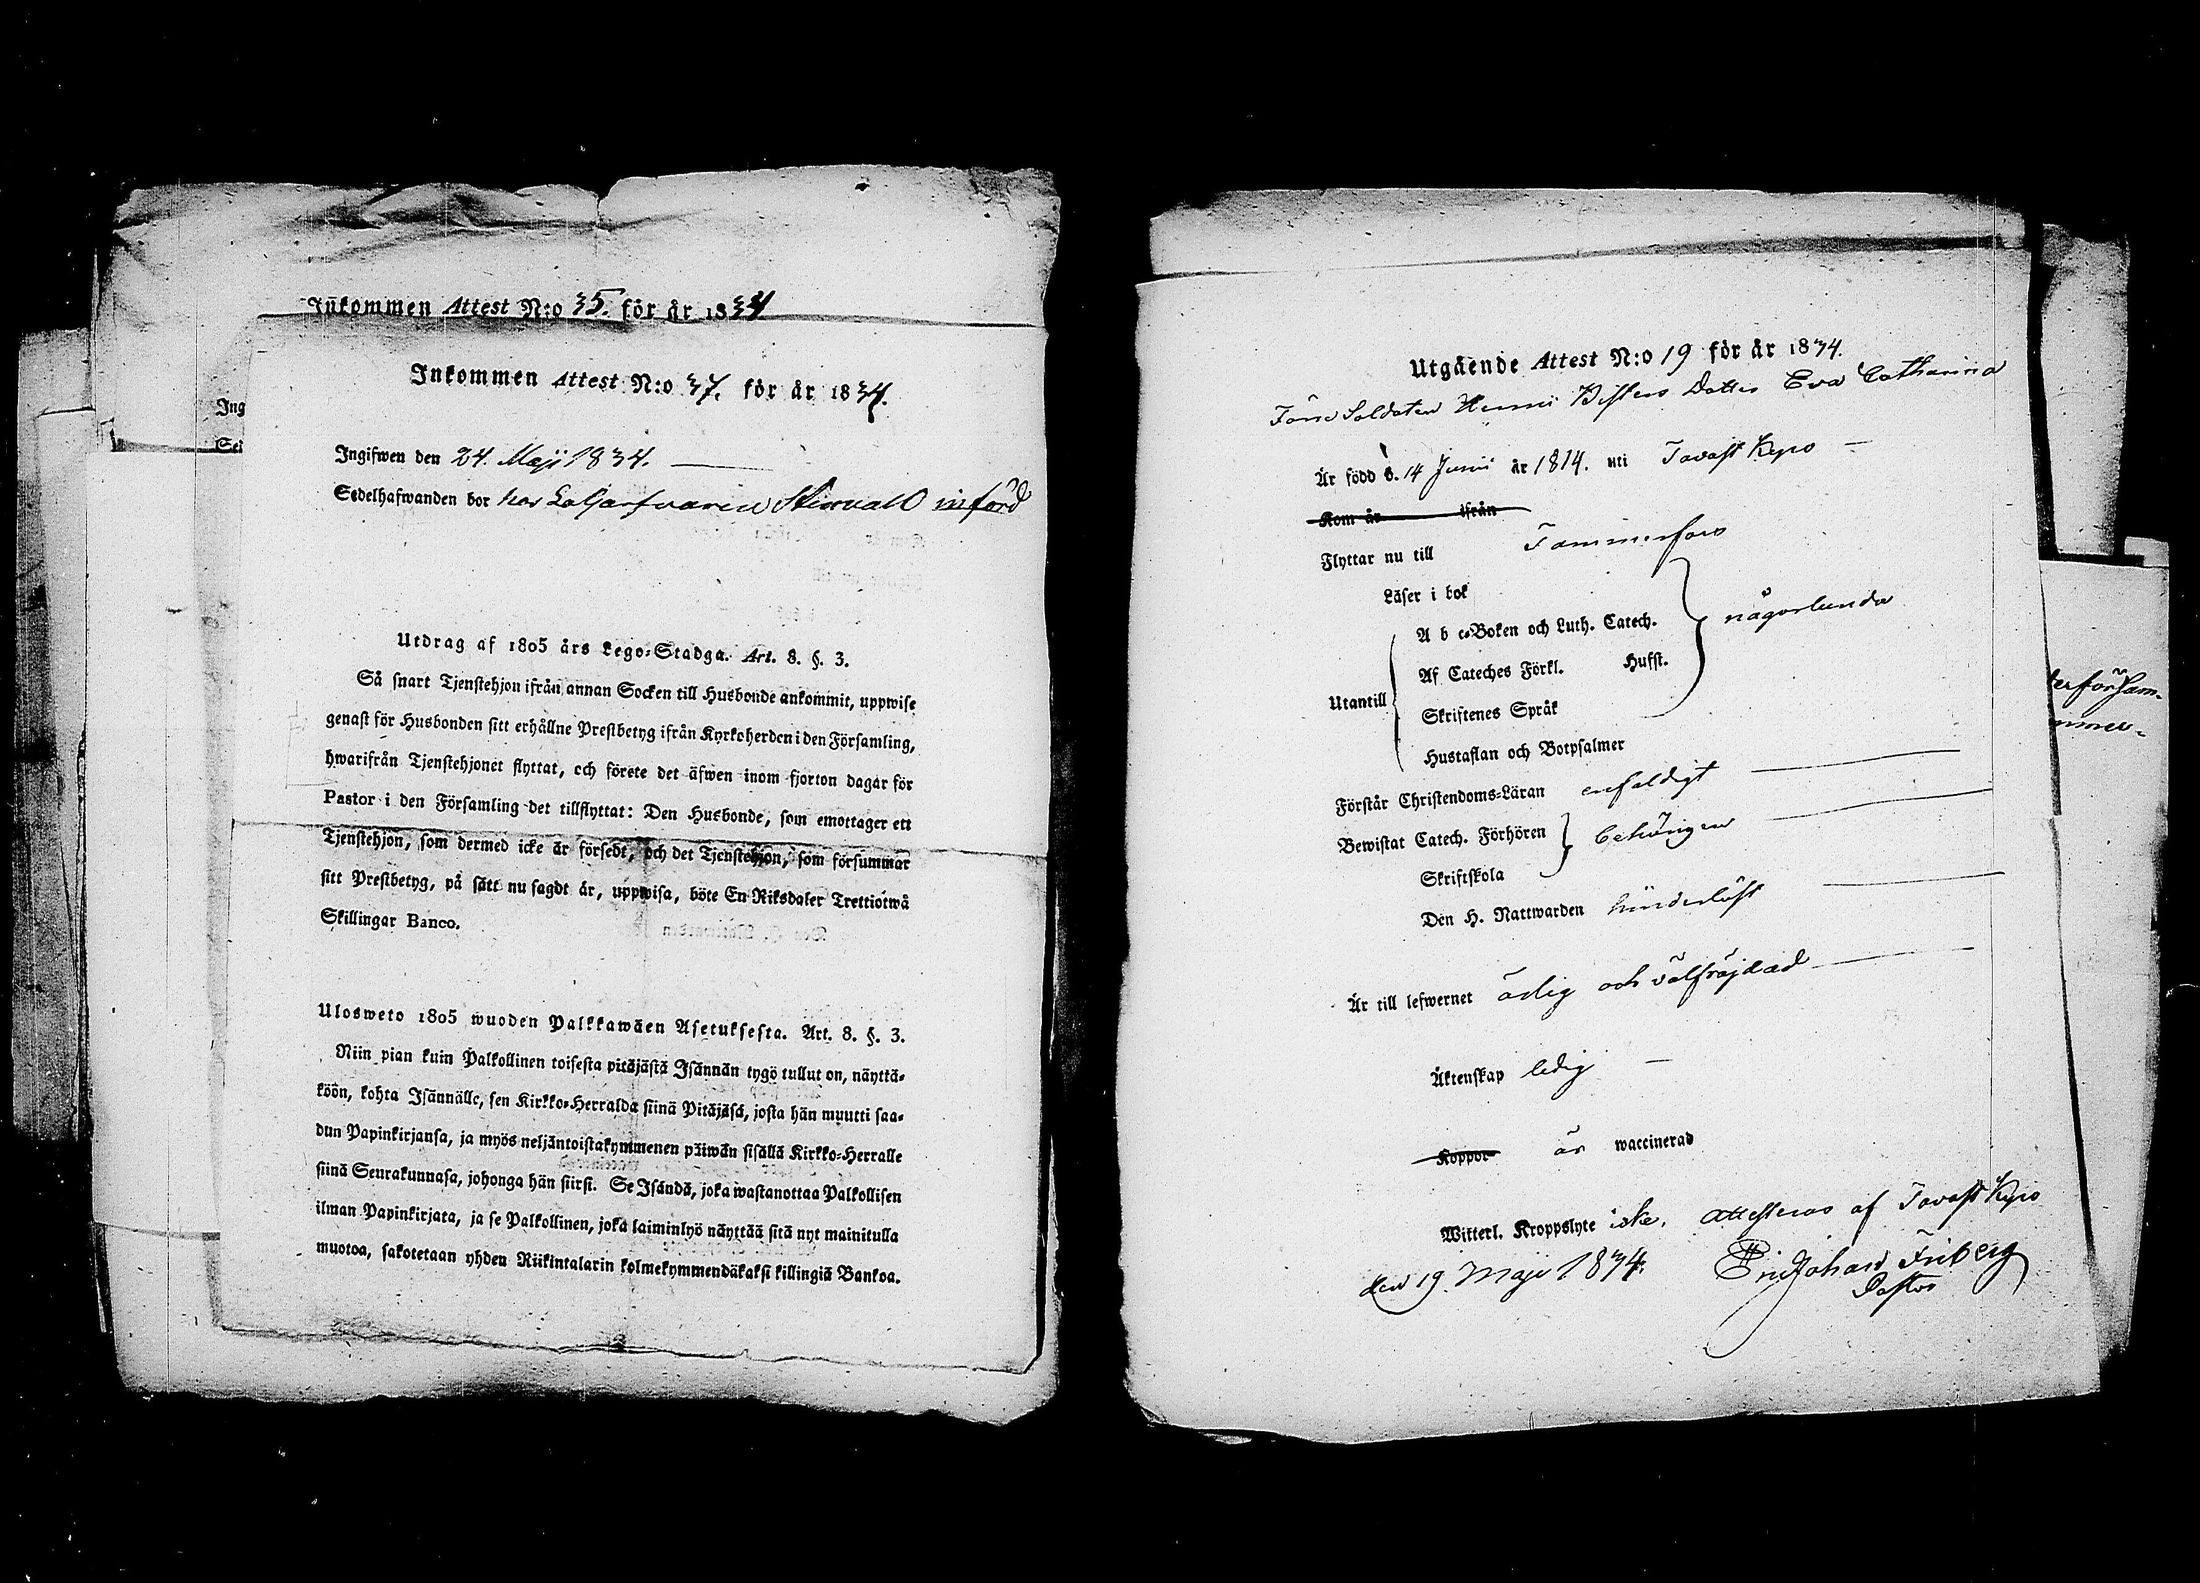 Inkommen Attest N:o 35. för år 1834
Inkommen Attest N:o 37. för år 1834.
Ing
Sed
Ingifwen den 24. Maji 1834.
Sedelhafwanden bor hos införd
Utdrag af 1805 års Lego-Stadga. Art. 8. §. 3.
Så snart Tjenstehjon ifrån annan Socken till Husbonde ankommit, uppwise
genast för Husbonden sitt erhållne Prestbetyg ifrån Kyrkoherden i den Församling,
hwarifrån Tjenstehjonet flyttat, och förete det äfwen inom fjorton dagar för
Pastor i den Församling det tillflyttat: Den Husbonde, som emottager ett
Tjenstehjon, som dermed icke är försedt, och det Tjenstehjon, som försummar
sitt Prestbetyg, på sätt nu sagdt är, uppwisa, böte En Riksdaler Trettiotwå
Skillingar Banco.
Ulosweto 1805 wuoden Palkkawäen Asetuksesta. Art. 8. §. 3.
Niin pian kuin Palkollinen toisesta pitäjästä Isännän tygö tullut on, näyttä-
köön, kohta Isännälle, sen Kirkko-Herralda siinä Pitäjäsä, josta hän muutti saa-
dun Papinkirjansa, ja myös neljäntoistakymmenen päiwän sisällä Kirkko-Herralle
siinä Seurakunnasa, johonga hän siirsi. Se Isändä, joka wastanottaa Palkollisen
ilman Papinkirjata, ja se Palkollinen, joka laiminlyö näyttää sitä nyt mainitulla
muotoa, sakotetaan yhden Riikintalarin kolmekymmendäkaksi killingiä Bankoa.
Utgående Attest N:o 19 för år 1834.
Förre Soldaten Dotter Eva Catharina
Är född d. 14 Junii år 1814. uti Tavast Kyro
Kom år ifrån
Flyttar nu till Tammerfors
Läser i bok
A b c-Boken och Luth. Catech. någorlunda
Af Cateches Förkl. Husst.
Utantill
Skriftenes Språk
Hustaflan och Botpsalmer
Förstår Christendoms-Läran enfaldigt
Bewistat Catech. Förhören behörigen
Skriftskola
Den H. Nattwarden hinderlöst
Är till lefwernet ärlig och välfräjdad
Äktenskap ledig
Koppor är waccinerad
Witterl. Kroppslyte icke. Attesteras af Tavast Kyro
den 19. Maji 1834. Eric Johan Friberg
Pastor